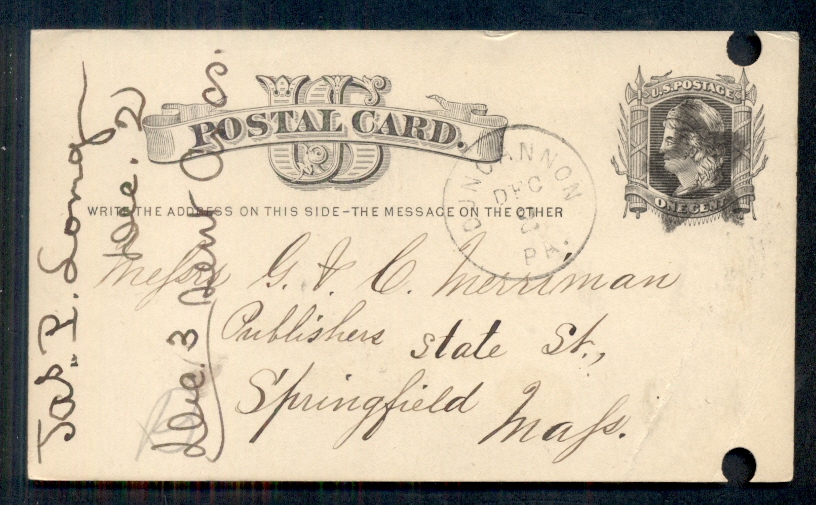 U.S. POSTAGE
ONE CENT
US
POSTAL CARD.
WRITE THE ADDRESS ON THIS SIDE-THE MESSAGE ON THE OTHER
DUNCANNON
DEC
PA.
Messrs G. & C. Merriman
Publishers
State St.,
Springfield
Mass.
Jas. P. Long
Dec. 2
Dec. 3